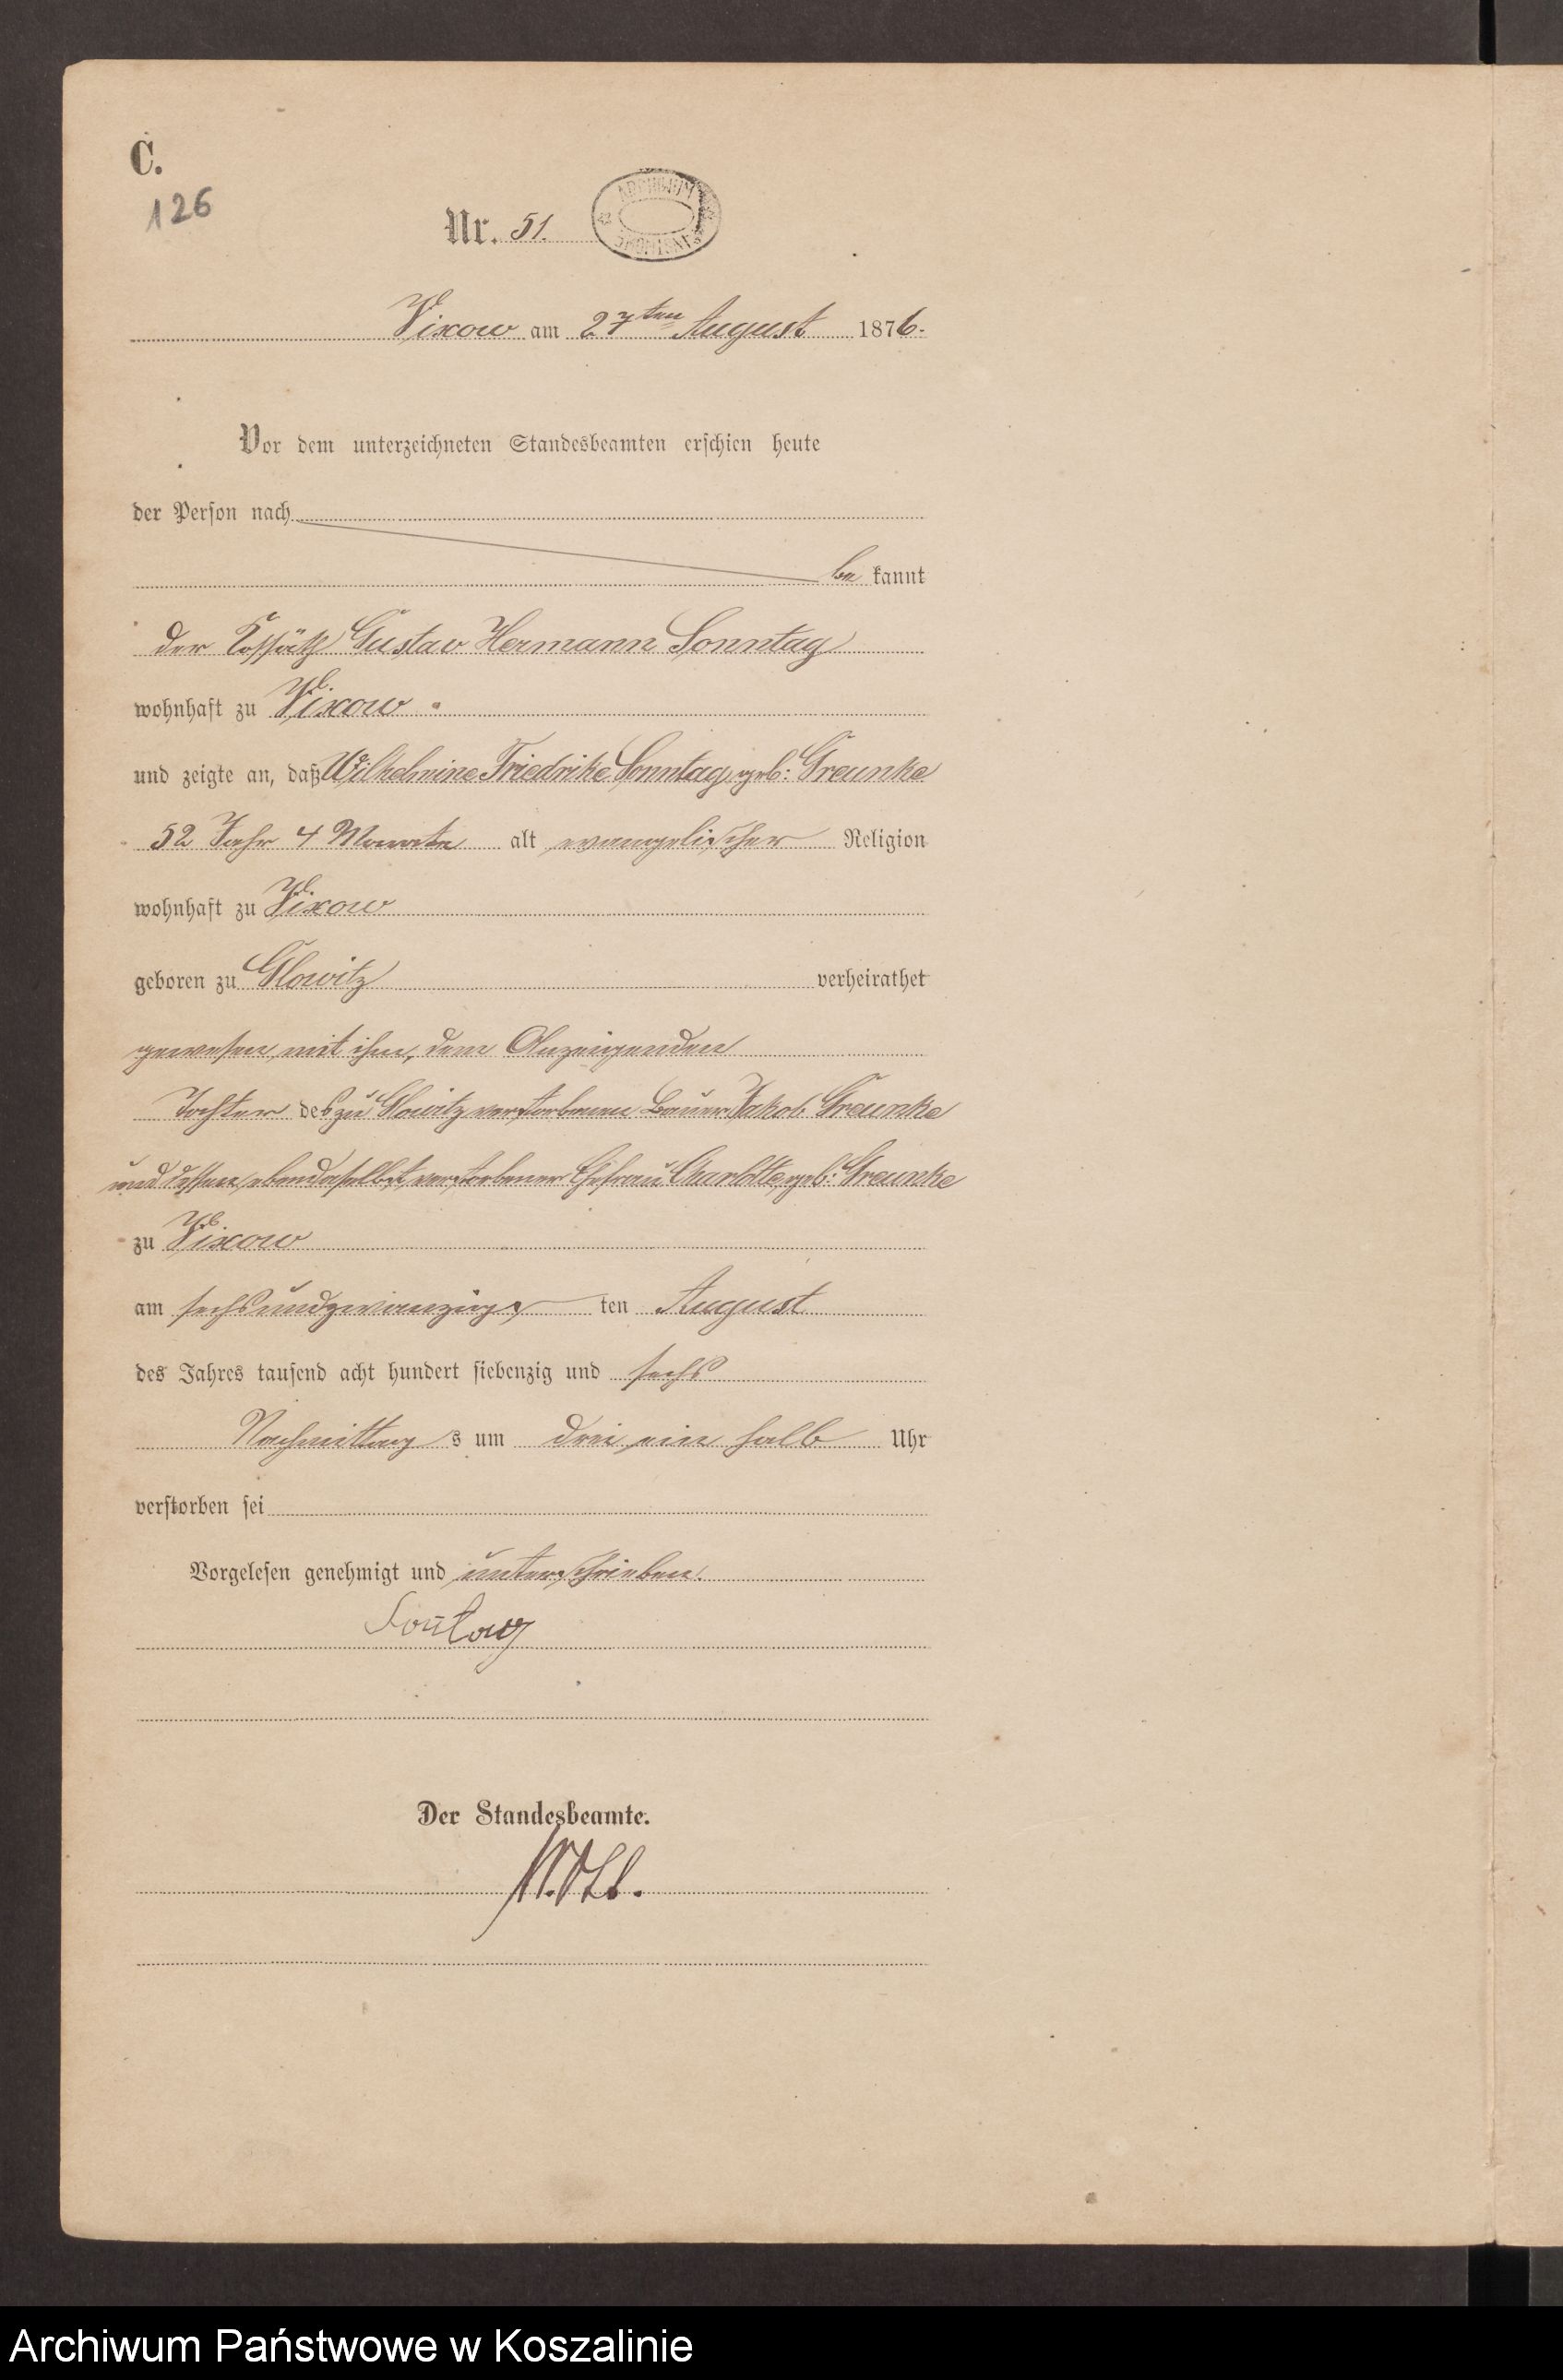 C.
126
Nr. 51.
ARCHIWUM
Vixow am 27ten August 1876.
Vor dem unterzeichneten Standesbeamten erschien heute
der Person nach
be kannt
der Kossäth Gustav Hermann Sonntag
wohnhaft zu Vixow
und zeigte an, daß Wilhelmine Friedrike Sonntag, geb: Greunke
52 Jahr 4 Monate alt evangelischer Religion
wohnhaft zu Vixow
geboren zu Glowitz verheirathet
gewesen mit ihm, dem Anzeigenden
Tochter des zu Glowitz verstorbenen Bauer Jakob Greunke
und dessen ebendaselbst verstorbener Ehefrau Charlotte, geb: Greunke
zu Vixow
am sechsundzwanzigs ten August
des Jahres tausend acht hundert siebenzig und sechs
Nachmittag s um drei ein halb Uhr
verstorben sei
Vorgelesen genehmigt und unterschrieben.
Sontag
Der Standesbeamte.
Archiwum Państwowe w Koszalinie